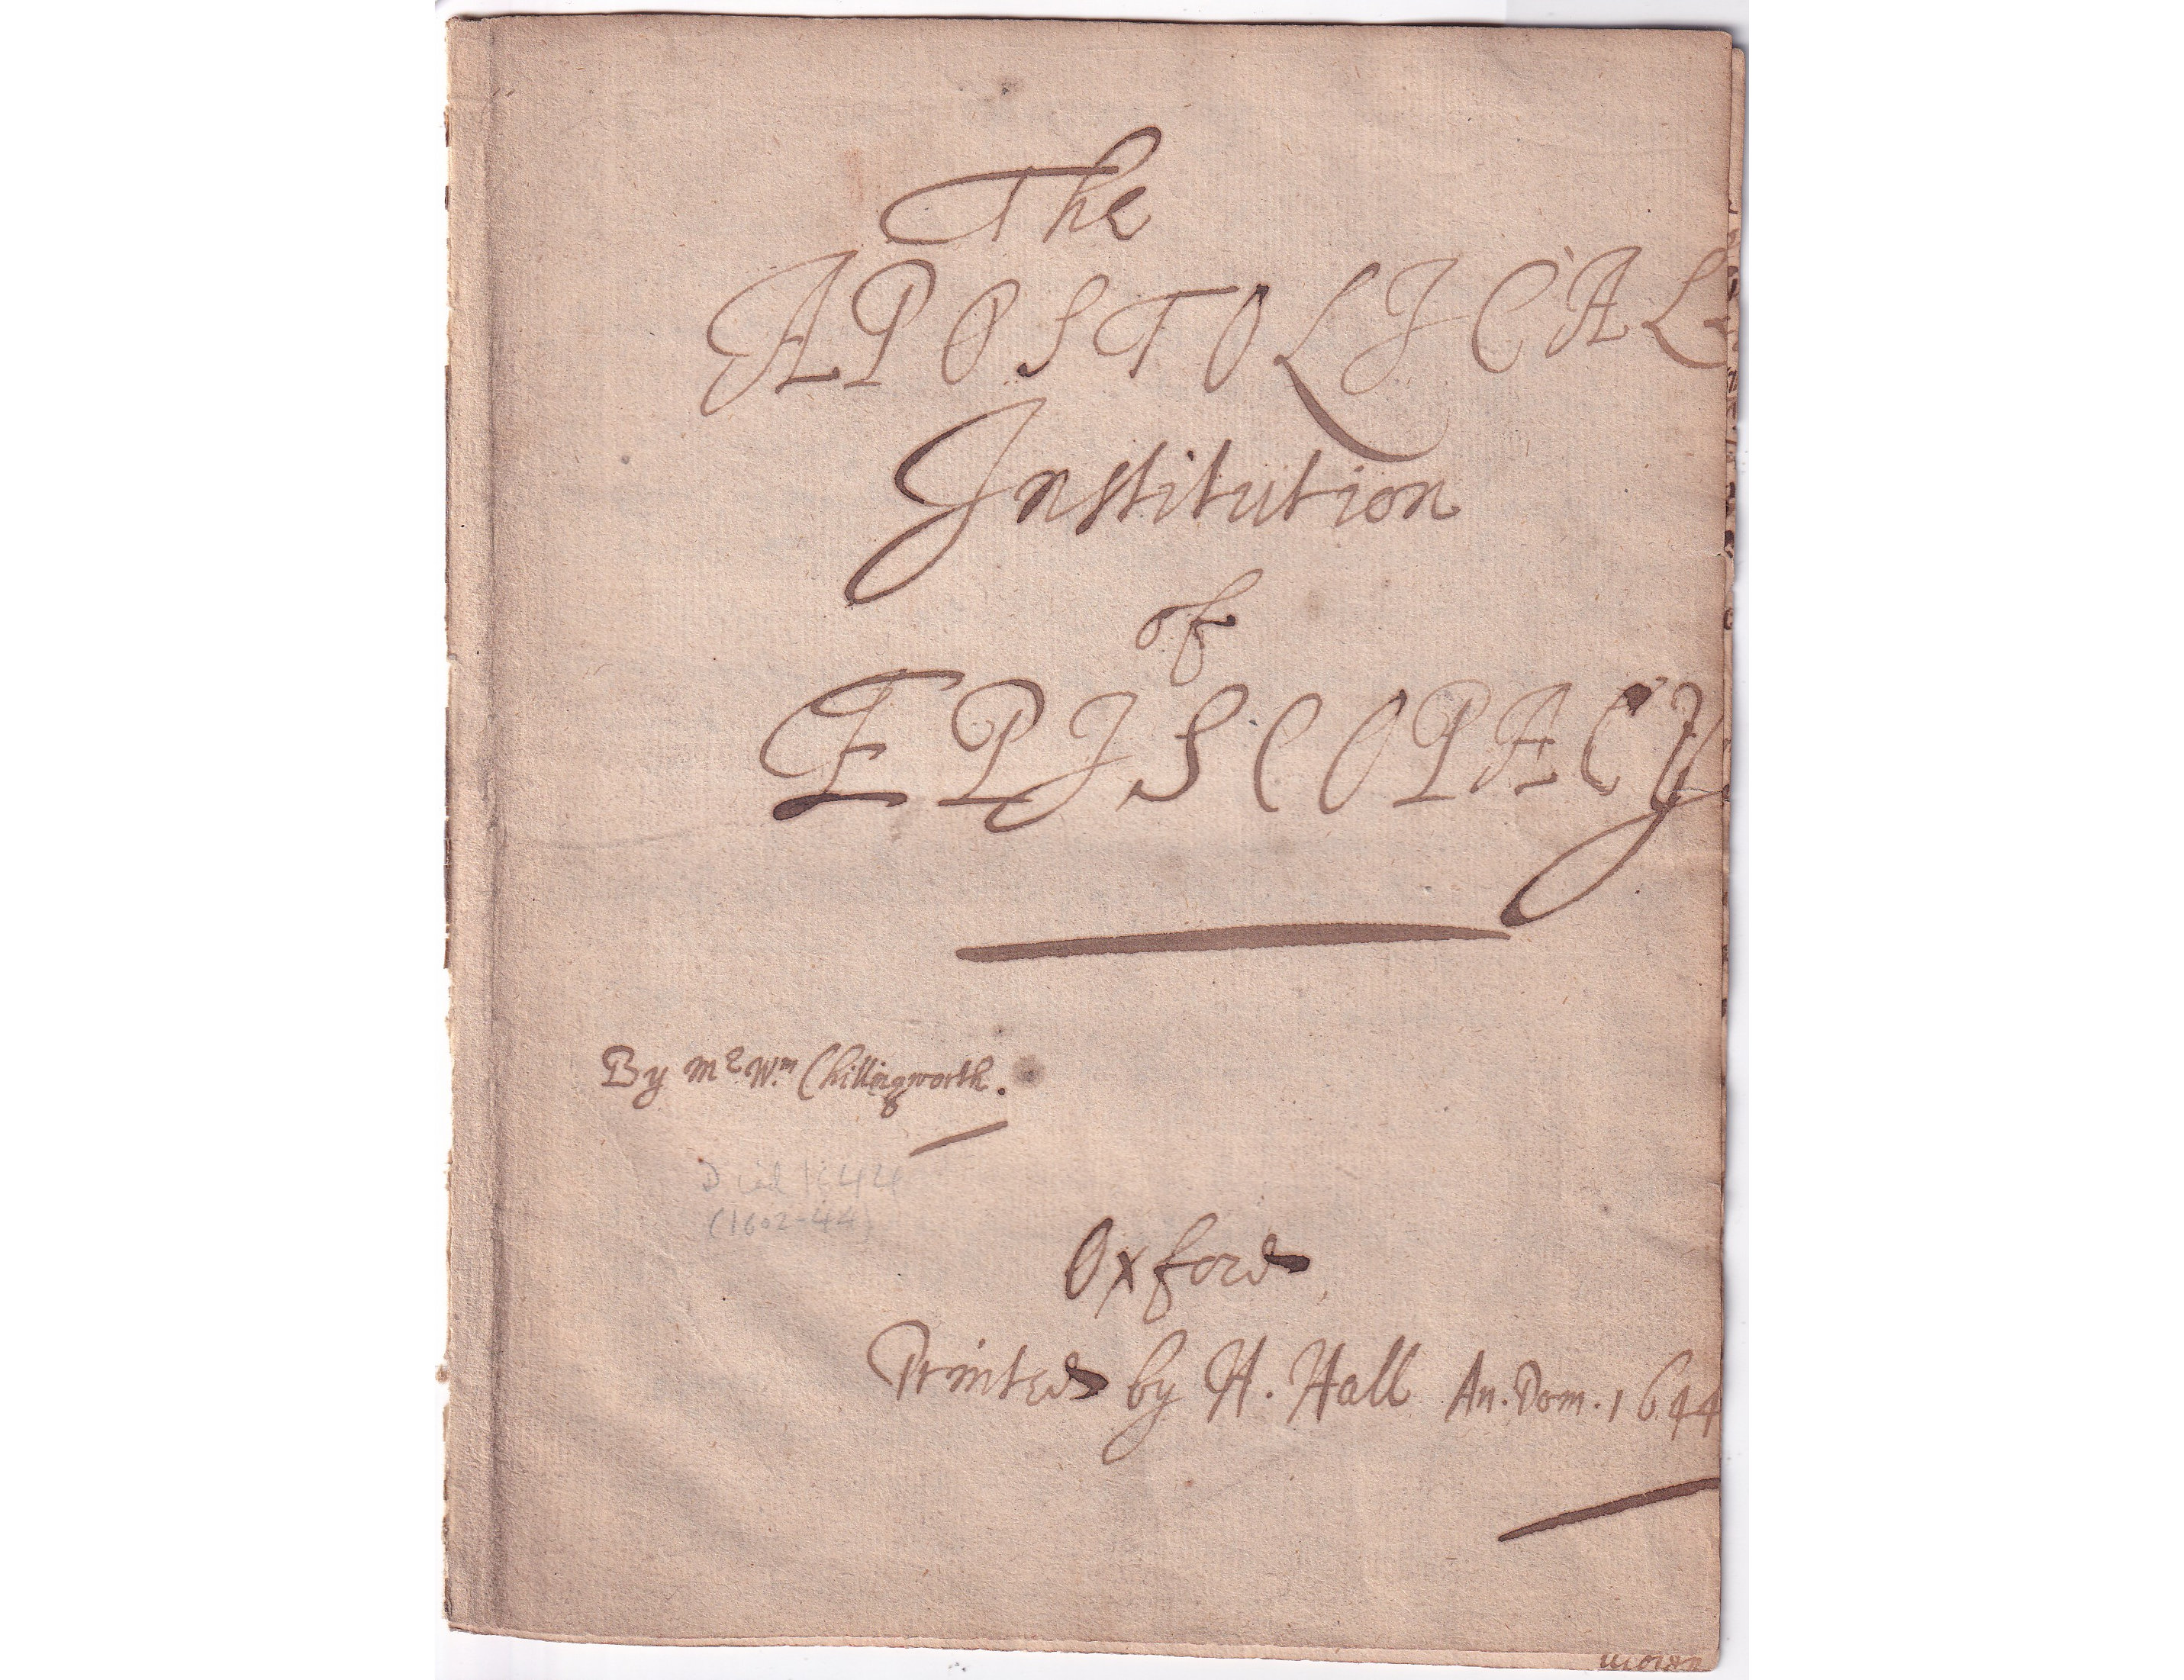 The
APOSTOLICALL
Institution
of
EPISCOPACY
By Mr Wm Chillingworth.
Died 1644
(1602-44)
Oxford
Printed by H. Hall An. Dom. 1644